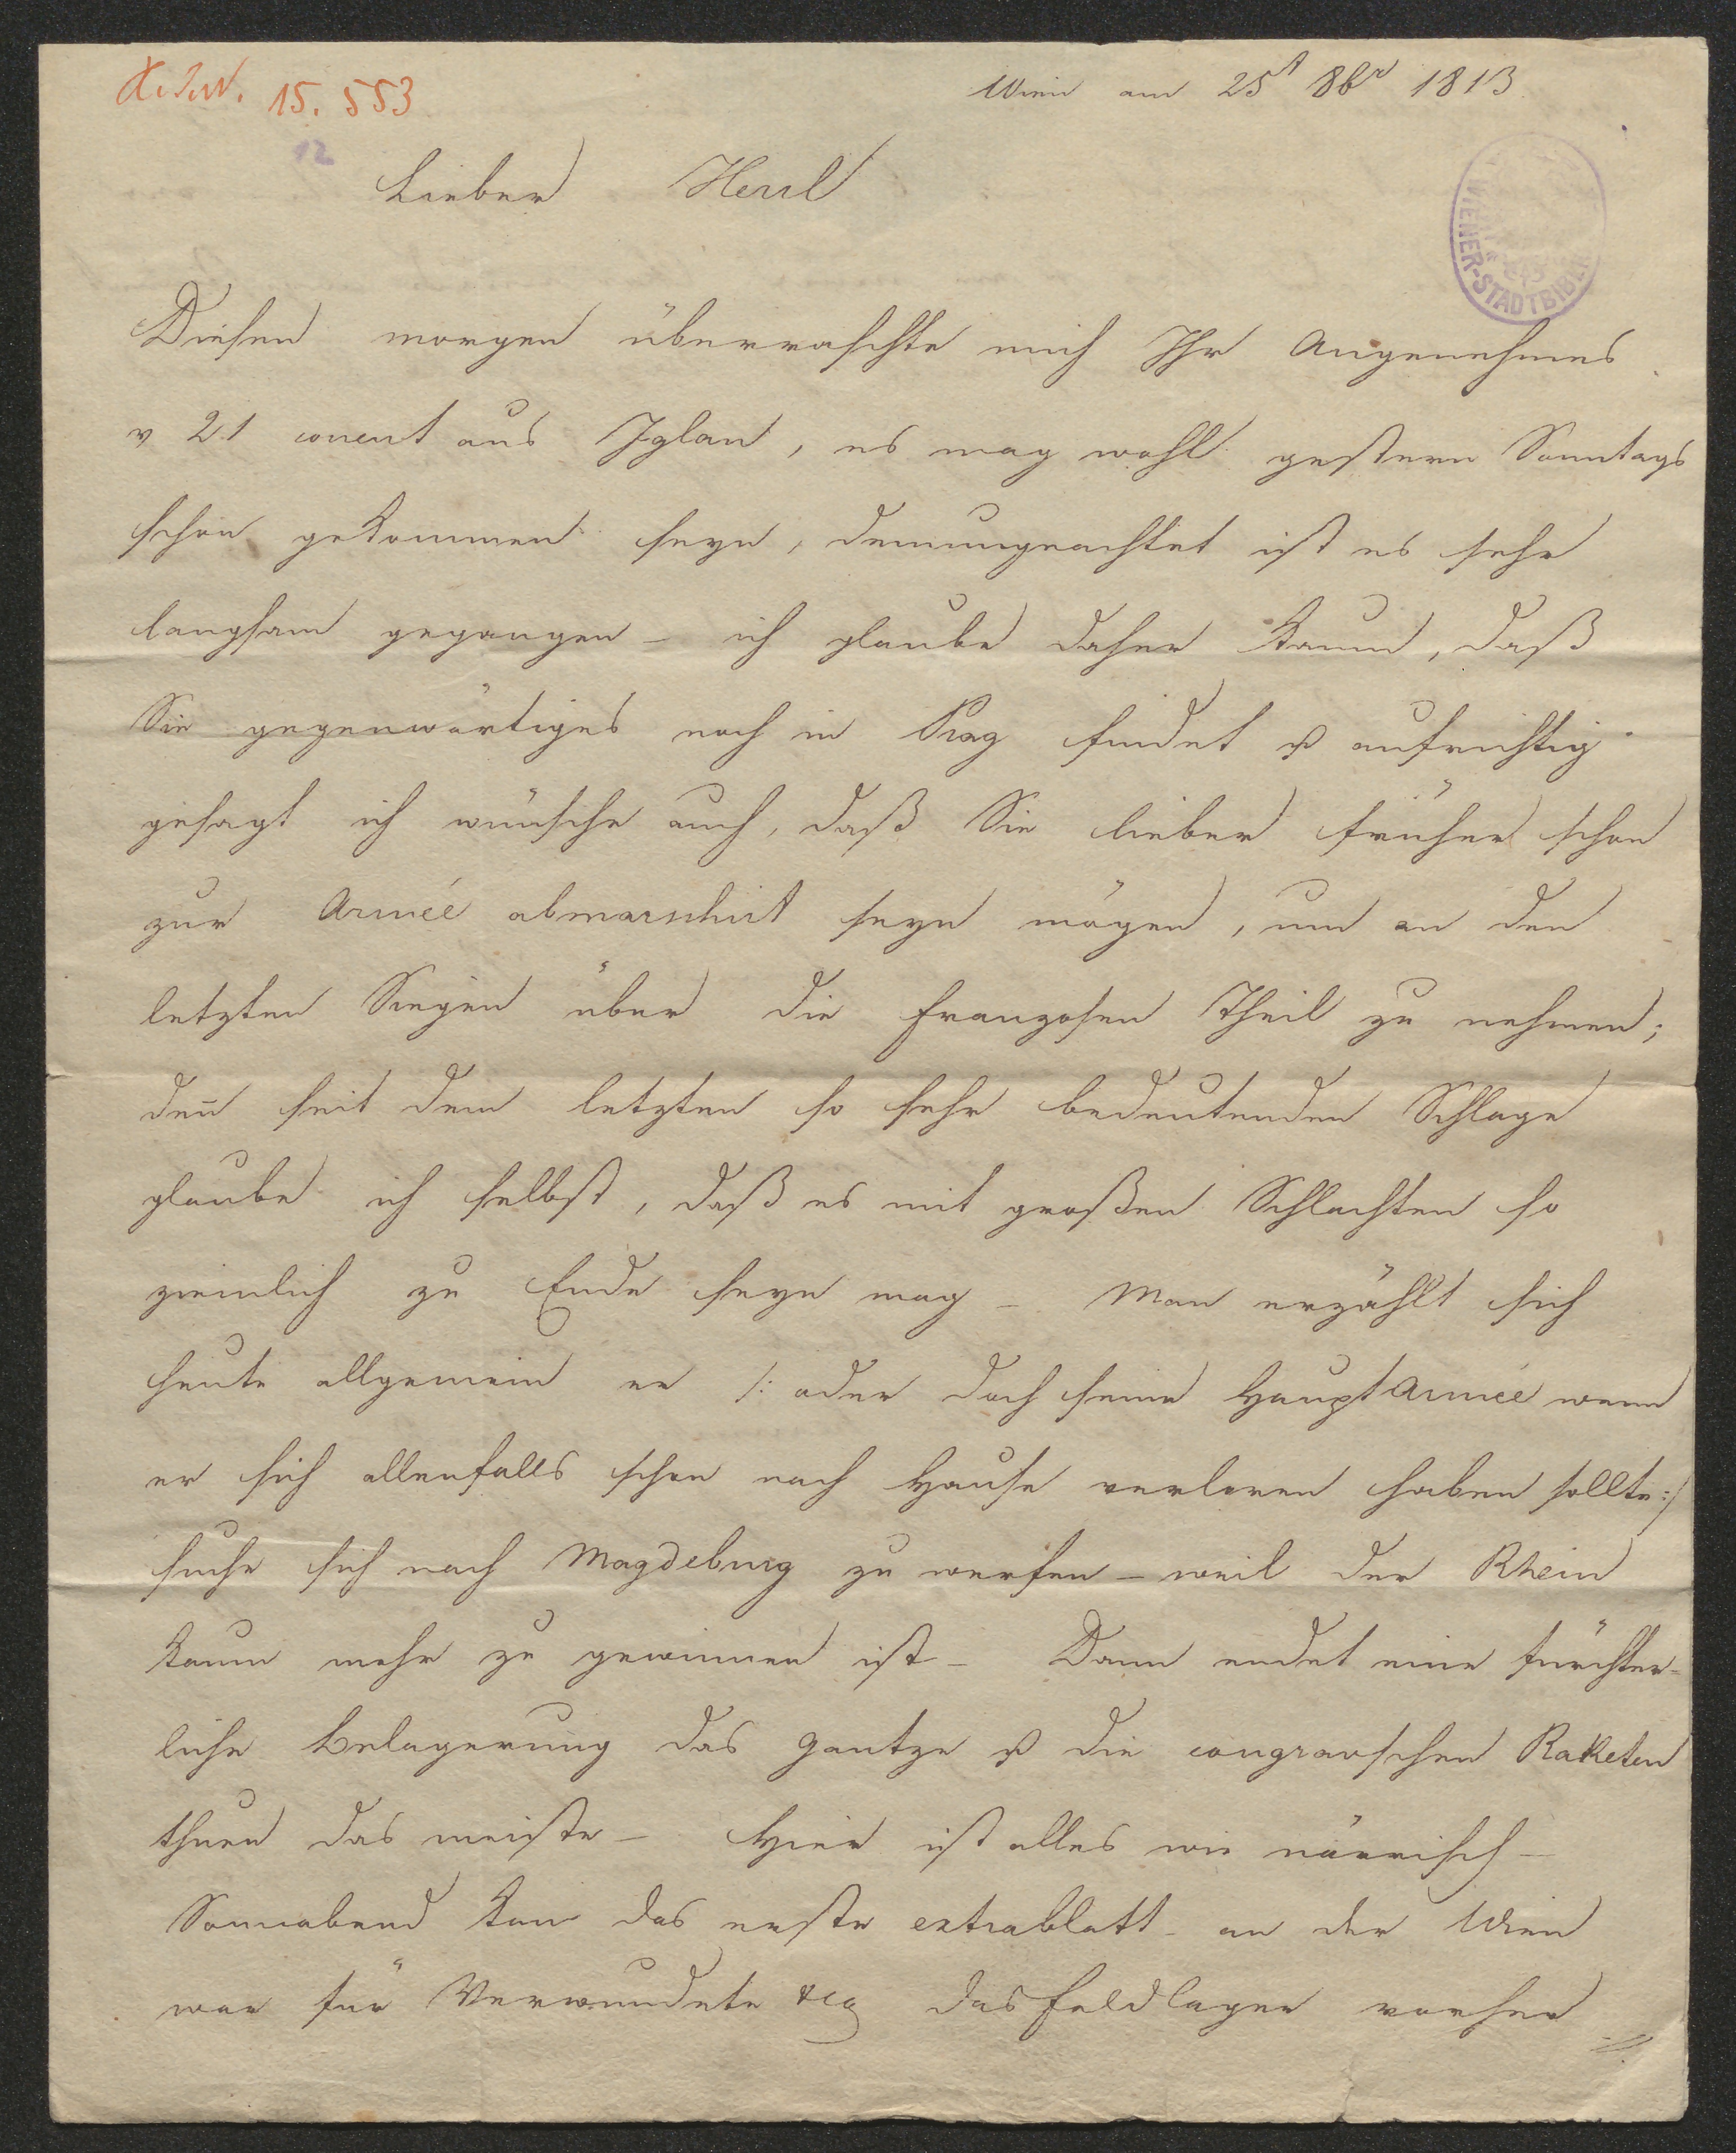 15.553
Wien am 25t 8br 1813
12
Lieber Herrl
WIENER-STADTBIBL
Diesen morgen überraschte mich Ihr Angenehmes
v 21 courent aus Iglau, es mag wohl gestern Sonntags
schon gekommen seyn, demungeachtet ist es sehr
langsam gegangen – ich glaube daher kaum, daß
Sie gegenwärtiges noch in Prag findet u aufrichtig
gesagt ich wünsche auch, daß Sie lieber früher schon
zur Armée abmarschirt seyn mögen, um an den
letzten Siegen über die Franzosen Theil zu nehmen;
den̄ seit dem letzten so sehr bedeutenden Schlage
glaube ich selbst, daß es mit großen Schlachten so
ziemlich zu Ende seyn mag – Man erzählt sich
heute allgemein er /: oder doch seine HauptArmée wenn
er sich allenfalls schon nach Hause verloren haben sollte :/
suche sich nach Magdeburg zu werfen – weil der Rhein
kaum mehr zu gewinnen ist – Dann endet eine fürchter-
liche Belagerung das Gantze u die congravschen Raketen
thuen das meiste – Hier ist alles wie närrisch –
Sonnabend kam das erste extrablatt – an der Wien
war für Verwundete das Feldlager vorher